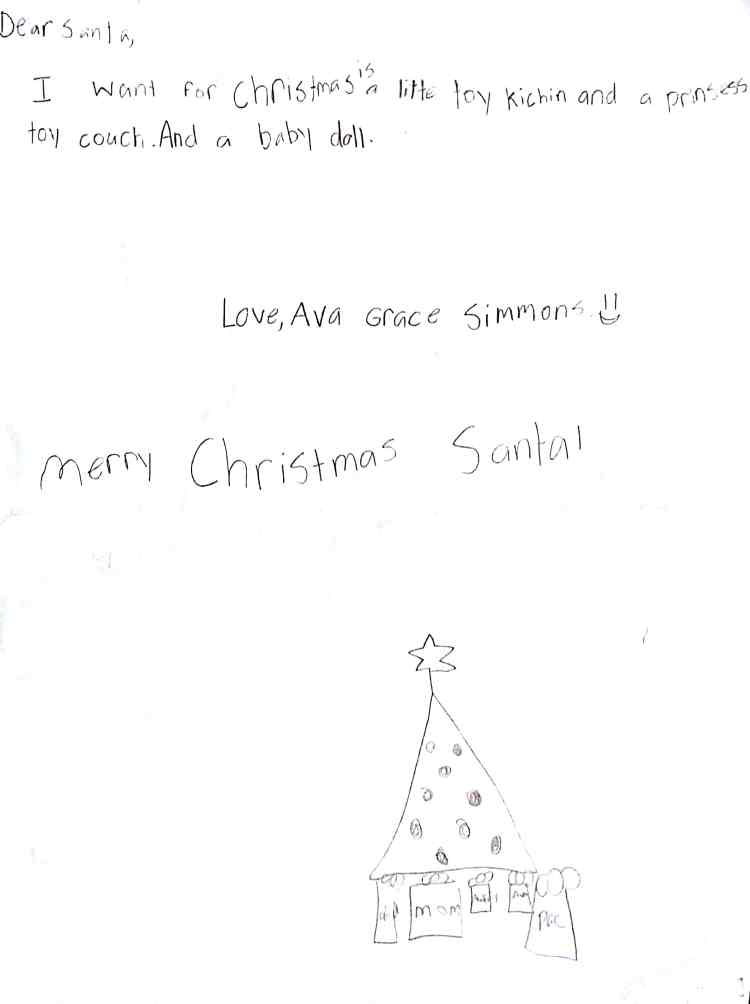 Dear Santa,
I want for Christmas is a litte toy kichin and a prinsess
toy couch. And a baby doll.
Love, Ava Grace Simmons
Merry Christmas Santa!
mom